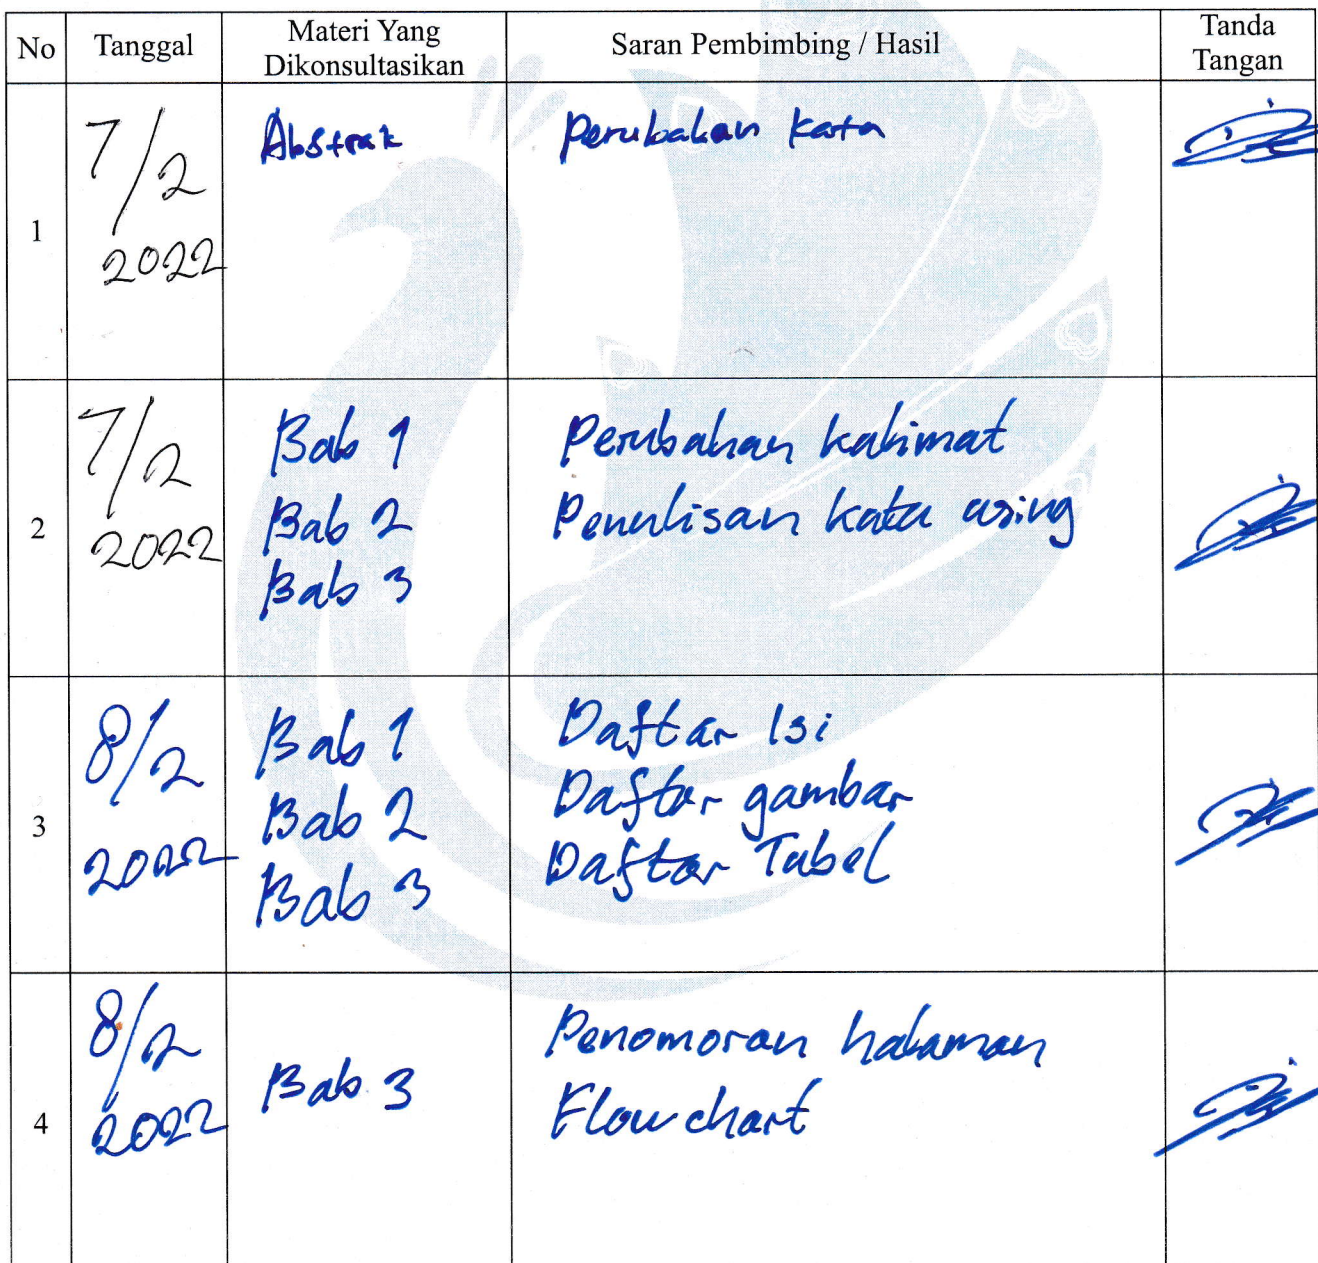 No Tanggal Materi Yang Dikonsultasikan Saran Pembimbing / Hasil Tanda Tangan
1
7/2
2022
Abstrak
Perubahan kata
2
7/2
2022
Bab 1
Bab 2
Bab 3
Perubahan kalimat
Penulisan kata asing
3
8/2
2022
Bab 1
Bab 2
Bab 3
Daftar Isi
Daftar gambar
Daftar Tabel
4
8/2
2022
Bab 3
Penomoran halaman
Flowchart